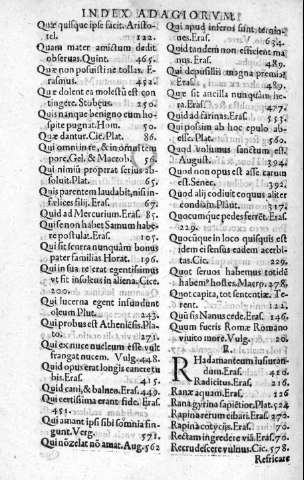 INDEX ADAGIORVM.
Quæ quisque ipse facit. Aristo-
tel. 122.
Quam mater amictum dedit
obseruas. Quint. 465.
Quæ non posuisti ne tollas. E-
rasmus. 452.
Quæ dolent ea molestũ est con
tingere. Stobęus. 250.
Quis nanque benigno cum ho-
spite pugnat. Hom. 50.
Quæ dantur. Cic. Plat. 86.
Qui omni in re, & in omni tem
pore. Gel. & Macrob. 56
Qui nimiũ properat serius ab-
soluit. Plat. 65.
Quis parentem laudabit, nisi in-
fælices filij. Eras. 67.
Quid ad Mercurium. Eras. 85.
Qui se non habet Samum habe-
re postulat. Eras. 105.
Qui sit futura nunquàm bonus
pater familias Horat. 196.
Qui in sua re erat egentissimus
vt sit insolens in aliena. Cice.
200.
Qui lucerna egent infundunt
oleum Plut. 243.
Qui probus est Atheniẽsis. Pla-
to. 271.
Qui è nuce nucleum esse vult
frangat nucem. Vulg. 448.
Quid opus erat longis canere ti
biis. Eras. 415.
Quid cani, & balneo. Eras. 449.
Qui certissima erant fide. Eras.
451.
Qui amant ipsi sibi somnia fin-
gunt. Verg. 571.
Qui nõ zelat nõ amat. Aug. 562
Qui apud inferos sunt termio-
nes. Eras. 634.
Quid tandem non efficient ma-
nus. Eras. 489.
Qui de pusillis magna premia
Eras. 489.
Quæ sit ancilla nunquàm he-
ra. Eras. 477.
Quid ad farinas. Eras. 553.
Qui possim ab hoc epulo ab-
esse. Plat. 560.
Quod volumus sanctum est.
August. 394.
Quod non opus est asse carum
est. Senec. 392.
Quod alij condiut coquus aliter
condiam. Plaut. 317.
Quocumque pedes feret. Eras.
229.
Quocũque in loco quisquis est
idem ei sensus eadem acerbi-
tas. Cic. 229.
Quot seruos habemus totidẽ
habem⁹ hostes. Macro. 278.
Quot capita, tot sententiæ. Te-
rent. 112.
Qui sis Nanus cede. Eras. 146.
Quum fueris Romæ Romano
viuito more. Vulg. 20.
R.
RHadamanteum Iusiurandum. Eras. 410.
Radicitus. Eras. 216.
Ranæ aquam. Eras. 210.
Rana gyrino sapiẽtior. Plat. 524
Rapina rerum eibari. Eras. 270.
Rapina cotycijs. Eras. 270.
Rectam ingredere viã. Eras. 70.
Recrudescere vulnus. Cic. 578.
Resricare